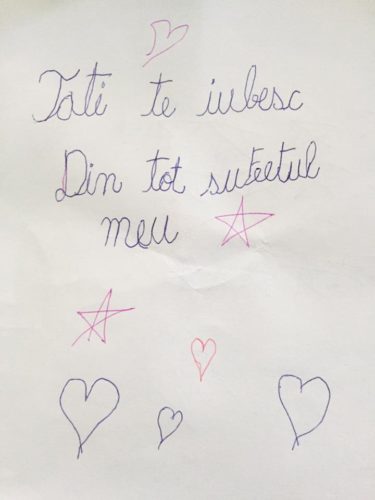 Tati te iubesc
Din tot sufletul
meu